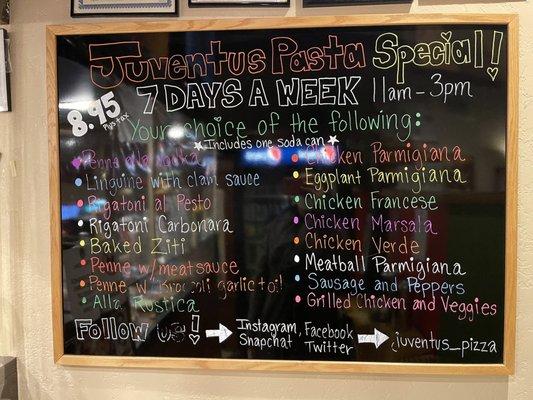 Juventus Pasta Special!
8.95 Plus tax
7 DAYS A WEEK 11am-3pm
Your choice of the following:
Includes one soda can
Penne alla Vodka
Linguine with clam sauce
Rigatoni al Pesto
Rigatoni Carbonara
Baked Ziti
Penne w/meatsauce
Penne w/Broccoli garlic+oil
Alla Rustica
Chicken Parmigiana
Eggplant Parmigiana
Chicken Francese
Chicken Marsala
Chicken Verde
Meatball Parmigiana
Sausage and Peppers
Grilled Chicken and Veggies
Follow us!
Instagram, Facebook
Snapchat Twitter
juventus_pizza